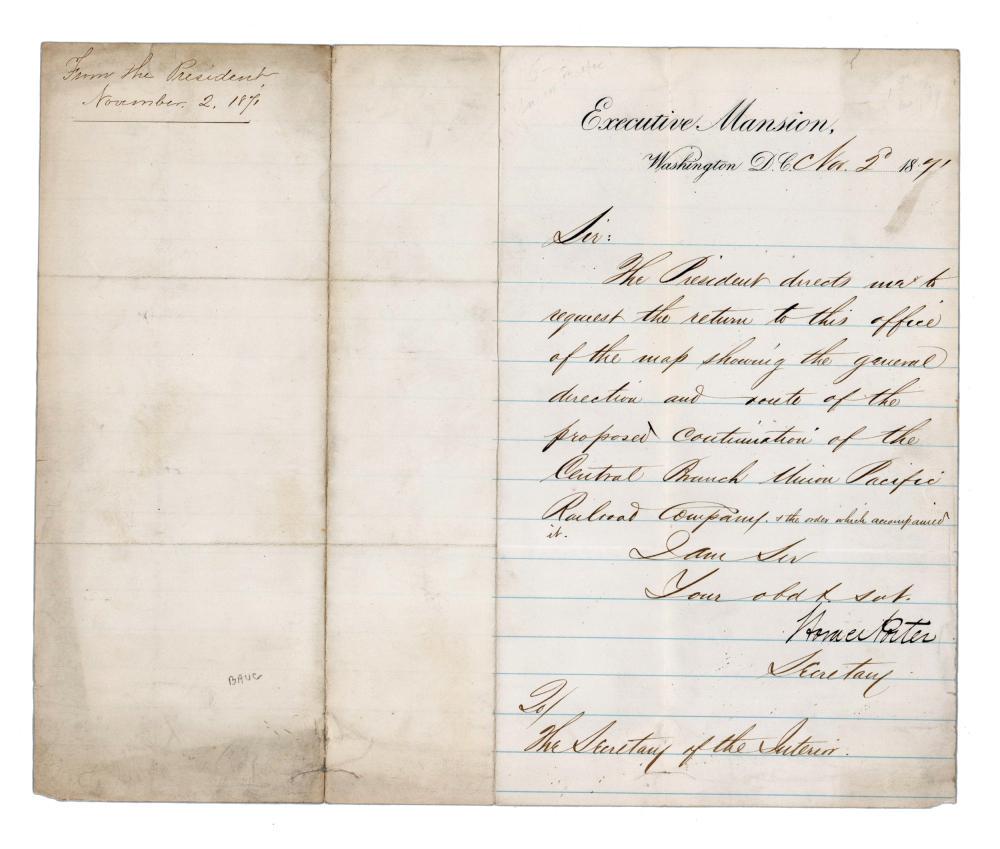 From the President
November. 2, 1871
Executive Mansion,
Washington D.C. Nov. 2d 1871
Sir:
The President directs me to
request the return to this office
of the map showing the general
direction and route of the
proposed continuation of the
Central Branch Union Pacific
Railroad Company. & the order which accompanied
it.
I am Sir
Your obdt svt.
Horace Porter
Secretary
To/
The Secretary of the Interior.
BAUG